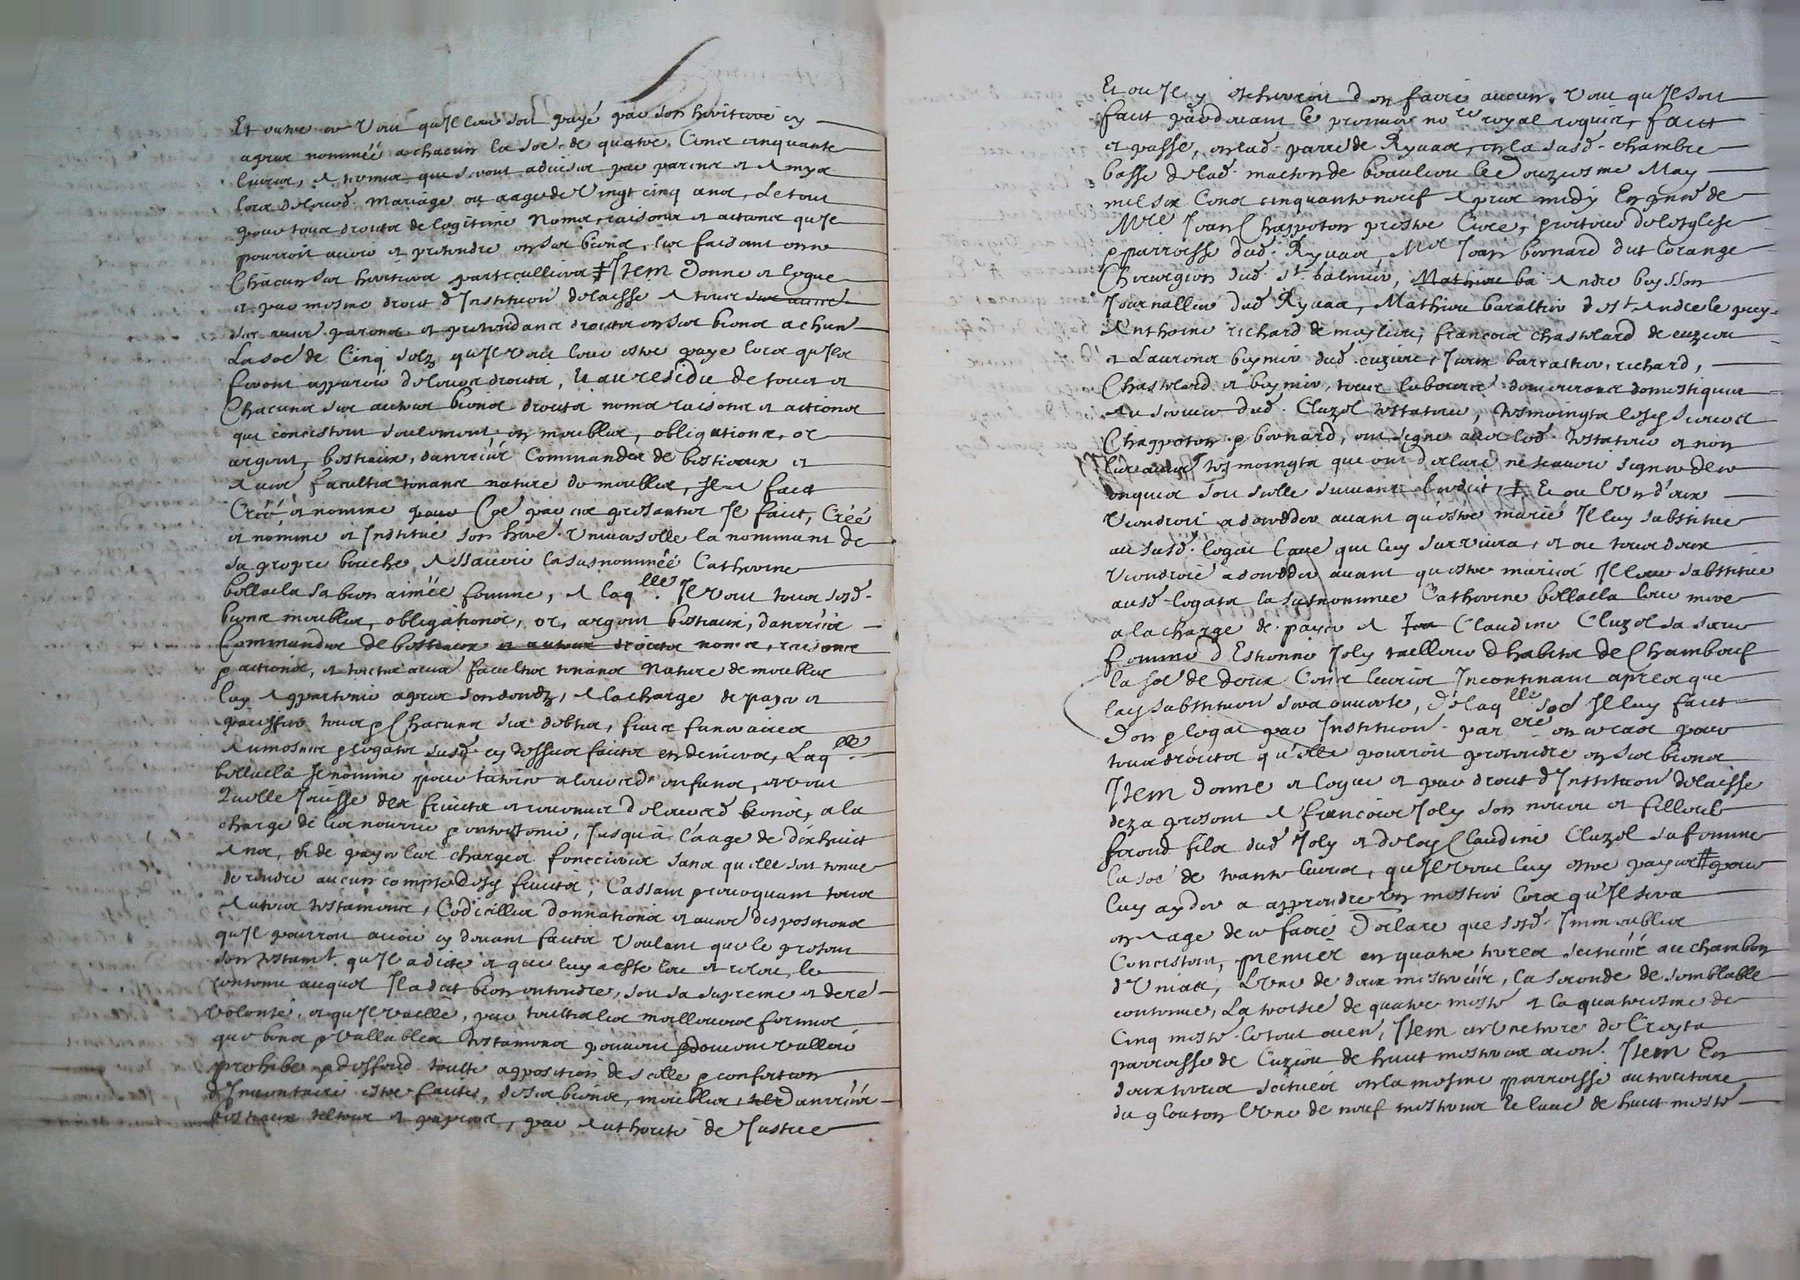 Et outre ce Veut qu'Il leur soit payé par son heritiere cy
apres nommée a chacun la so͞e de quatre Centz cinquante
livres, A termes que seront advisez par parens et Amys
lors de leurd. mariage ou aage de Vingt cinq ans, Le tout
pour tous droitz de legitime Noms, raisons et actions qu'Ils
pourroit avoir et pretendre en ses biens, les faisant en ce
Chacun ses heritiers particulliers ‡ Item Donne et legue
et par mesme droit d'Institution delaisse A tous ses autres
ses autres parens et pretendans droictz en ses biens a chun
La so͞e de Cinq solz qu'Il veut leur estre payé lors qu'Ils
feront apparoir de leurs droitz, Et au residu de tous et
Chacuns ses autres biens droitz noms raisons et actions
qui concistent seulement en meubles, obligations, or
argent, bestiaux, danrées Commandes de bestiaux et
Autres facultes tenans nature de meubles, Il a faict
Créé et nomme par ces presantes Il faict, Créé
et nomme et Institue son here Universelle la nommant de
sa propre bouche, Assavoir la susnommée Catherine
bellacla sa bien aimée femme, A laqlle. Il veut tous sesd.
biens meubles, obligations, or, argent bestiaux, danrées
Commandes de bestiaux et autres droictz noms, raisons
& actions, et toutes autres facultes tenans Nature de meubles
luy Appartenir apres son decedz, A la charge de payer et
tous & Chacuns ses debtes, frais funeraires
Aumosnes & legatz susd. cy dessus faictz et denieres, Laqlle.
bellacla Il nomme pour tutrice a leursd. enfans, et veut
Quelle Jouisse des fruictz et revenus de leursd. biens, a la
charge de les nourrir & entretenir, Jusqu'a l'aage de dixhuict
Ans, & de payer les charges foncieres sans qu'elle soit tenue
de rendre aucun compte desd. fruictz, Cassant & revoquant tous
Autres testamens, Codicilles donnations et autres dispositions
qu'Il pourroit avoir cy devant faictz Voulant que le present
son testamt. qu'Il a dicté et que luy a esté leu et releu, le
contenu auquel Il a dit bien entendre, soit sa supreme et dere
volonté, et qu'Il vaille, par toutes les meilleures formes
que bons & Vallables testamens peuvent & doivent valloir
prohibe & deffend toutte apposition de scelle & confection
d'Inventaire estre faictz, de ses biens, meubles, danrées
bestiaux titres et papiers, par Authorité de Justice
Et ou Il y escherroit d'en faire aucun, Veut qu'Il soit
faict pardevant le premier nore royal requis, faict
et passé, en lad. parre de Ryvas, en la susd. chambre
basse de lad. maison de beaulieu le Douziesme May
mil six Centz cinquante neuf Apres midy En pnce de
Mre Jean Chappoton prestre Curé, de l'Esglise
& parroisse dud. Ryvas, Mre Jean bonnard dit lorange
Chirurgien dud. St. balmier, Mathieu ba Andre buisson
Journallier dud. Ryvas, Mathieu barallier de St Andre le puy
Anthoine richard de meylieu, françois chastelard de cuzieu
et Laurens beynier dud. cuzieu, Jceux barrallier, richard,
Chastelard et beynier, tous laboureurs demeurans domestiques
Au service dud. Cluzel testateur, tesmoingtz lesqlz sieurs
Chappoton & bonnard, ont signé avec led. testateur et non
les autres tesmoingtz que ont declaré ne scavoir signer de ce
enquis soit scellé suivant l'ecdict, ‡ Et ou l'un d'eux
viendroit a deceder avant qu'estre marié Il luy substitue
au susd. legat l'autre qui luy survivra, et ou tous deux
viendroit a deceder avant qu'estre mariés Il leur substitue
ausd. legatz la susnommée Catherine bellacla leur mere
a la charge de payer A Claudine Cluzel sa sœur
femme d'Estienne Joly tailleur d'habitz de Chambeuf
la so͞e de deux Centz livres Incontinant apres que
lad. substitution sera ouverte, de laqlle. so͞e Il luy faict
don & legat par Institution par ere en ce cas pour
tous droictz qu'elle pourroit pretendre en ses biens
Item donne et legue et par droict d'Institution delaisse
dez a present A françois Joly son neveu et filleul
fils dud. Joly et de lad. Claudine Cluzel sa femme
la so͞e de trante livres, qu'Il veut luy estre payés ‡ pour
luy ayder a apprendre un mestier lors qu'Il sera
en Aage de ce faire Declare que sesd. Immeubles
Concistent, premier en quatre terres scituées au chambon
d'Unias, L'une de deux mesterées, la seconde de semblable
contenue, La troisie de quatre meste et la quatriesme de
Cinq meste le tout aven, Item en Une terre de Croysta
parroisse de Cuzieu de huict mesterees aven. Item En
deux terres scituées en la mesme parroisse au territoire
du glouton l'une de neuf mesterees Et l'autre de huict meste